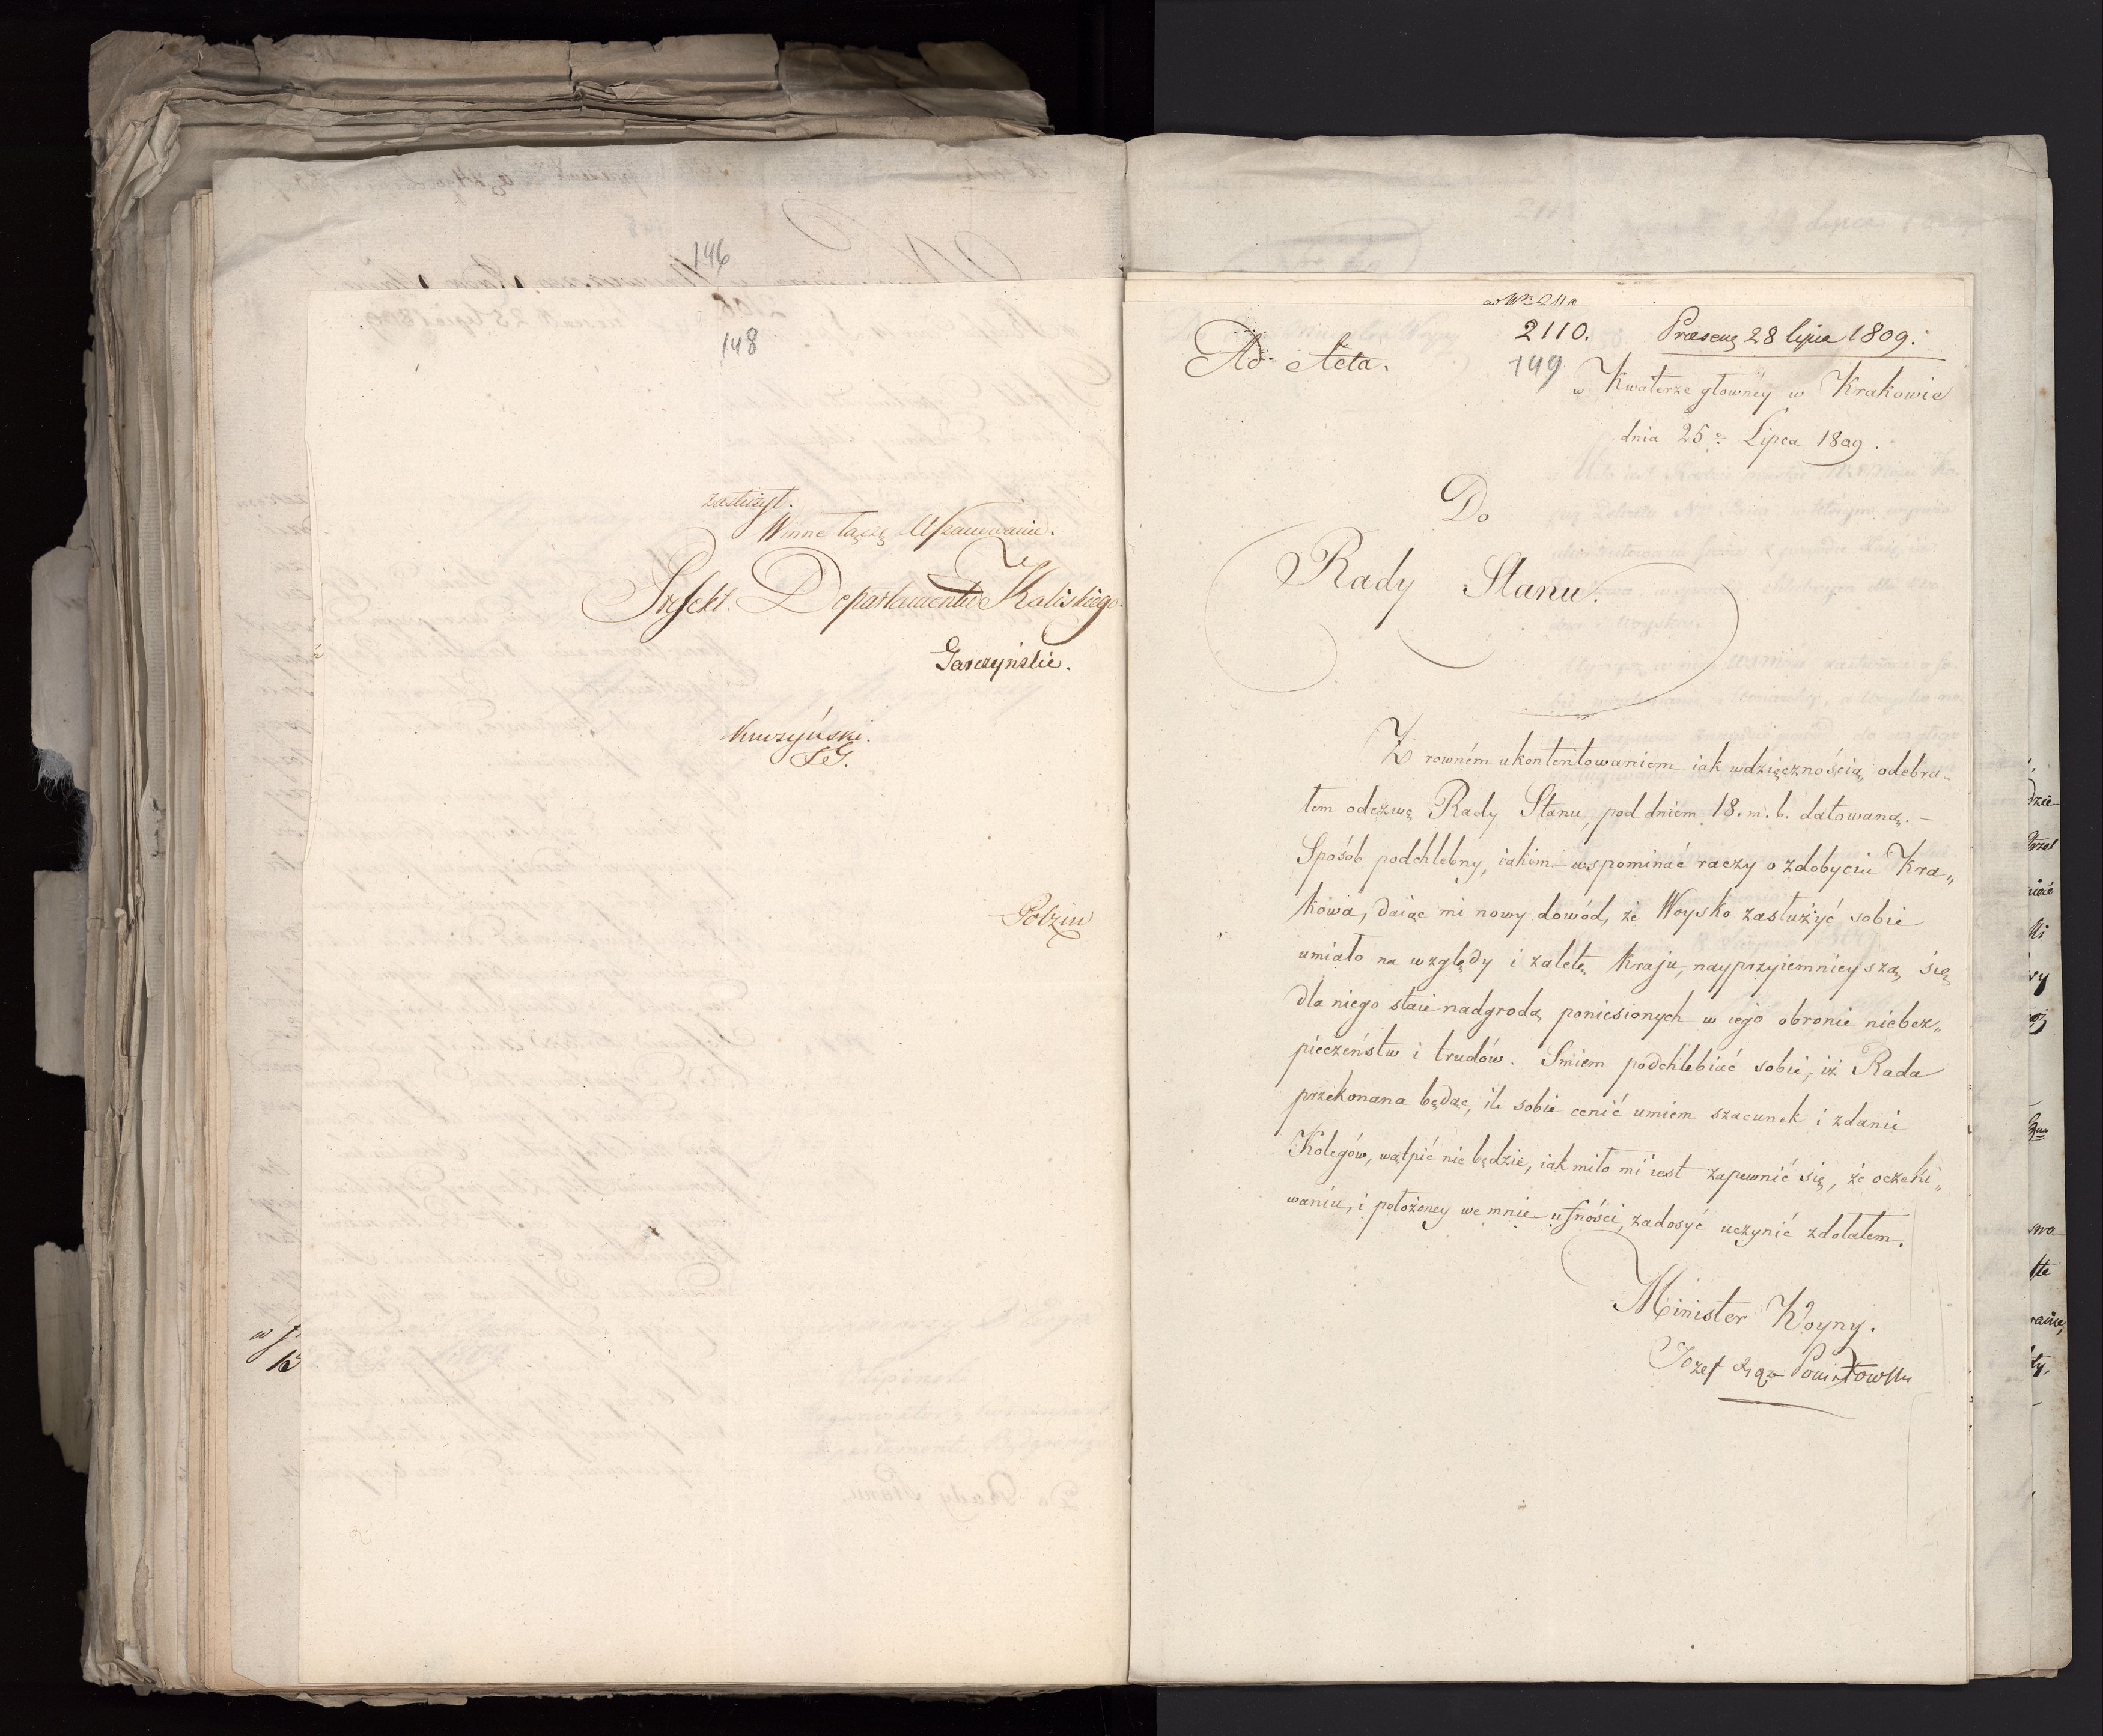 146
148
zasłużył.
Winne łączę Uszanowanie.
Prefekt Departamentu Kaliskiego.
Garczyński.
SG.
2110.
Præsens 28 lipca 1809.
Ad Acta.
149
w Kwaterze główney w Krakowie
dnia 25º Lipca 1809.
Do
Rady Stanu.
Z rowném ukontentowaniem iak wdzięcznością, odebra-
łem odezwę Rady Stanu, pod dniem 18. m. b. datowaną. –
Sposób podchlebny, iakim wspominać raczy o zdobyciu Kra„
kowa, daiąc mi nowy dowód, że Woysko zasłużyć sobie
umiało na względy i zaletę Kraju, nayprzyiemnieyszą się
dla niego staie nadgrodą poniesionych w iego obronie niebez„
pieczeństw i trudów. Smiem podchlebiać sobie, iż Rada
przekonana będąc, ile sobie cenić umiem szacunek i zdanie
Kolegów, wątpić nie będzie, iak miło mi iest zapewnić się, że oczeki„
waniu, i położoney we mnie ufności, zadosyć uczynić zdołałem.
Minister Woyny.
Jozef Xiąże Poniatowski